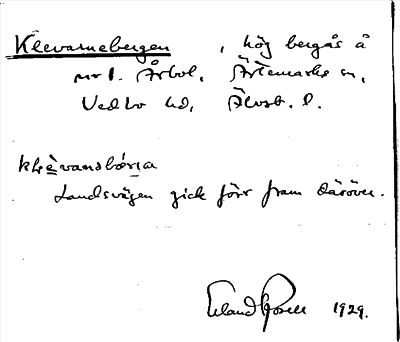 Klevarnebergen, hög bergås å
nr 1. Årbol, Ärtemarks sn,
Vedbo hd, Älvsb. l.
klèvanəbǽrja
Landsvägen gick förr fram däröver.
Erland Rosell 1929.